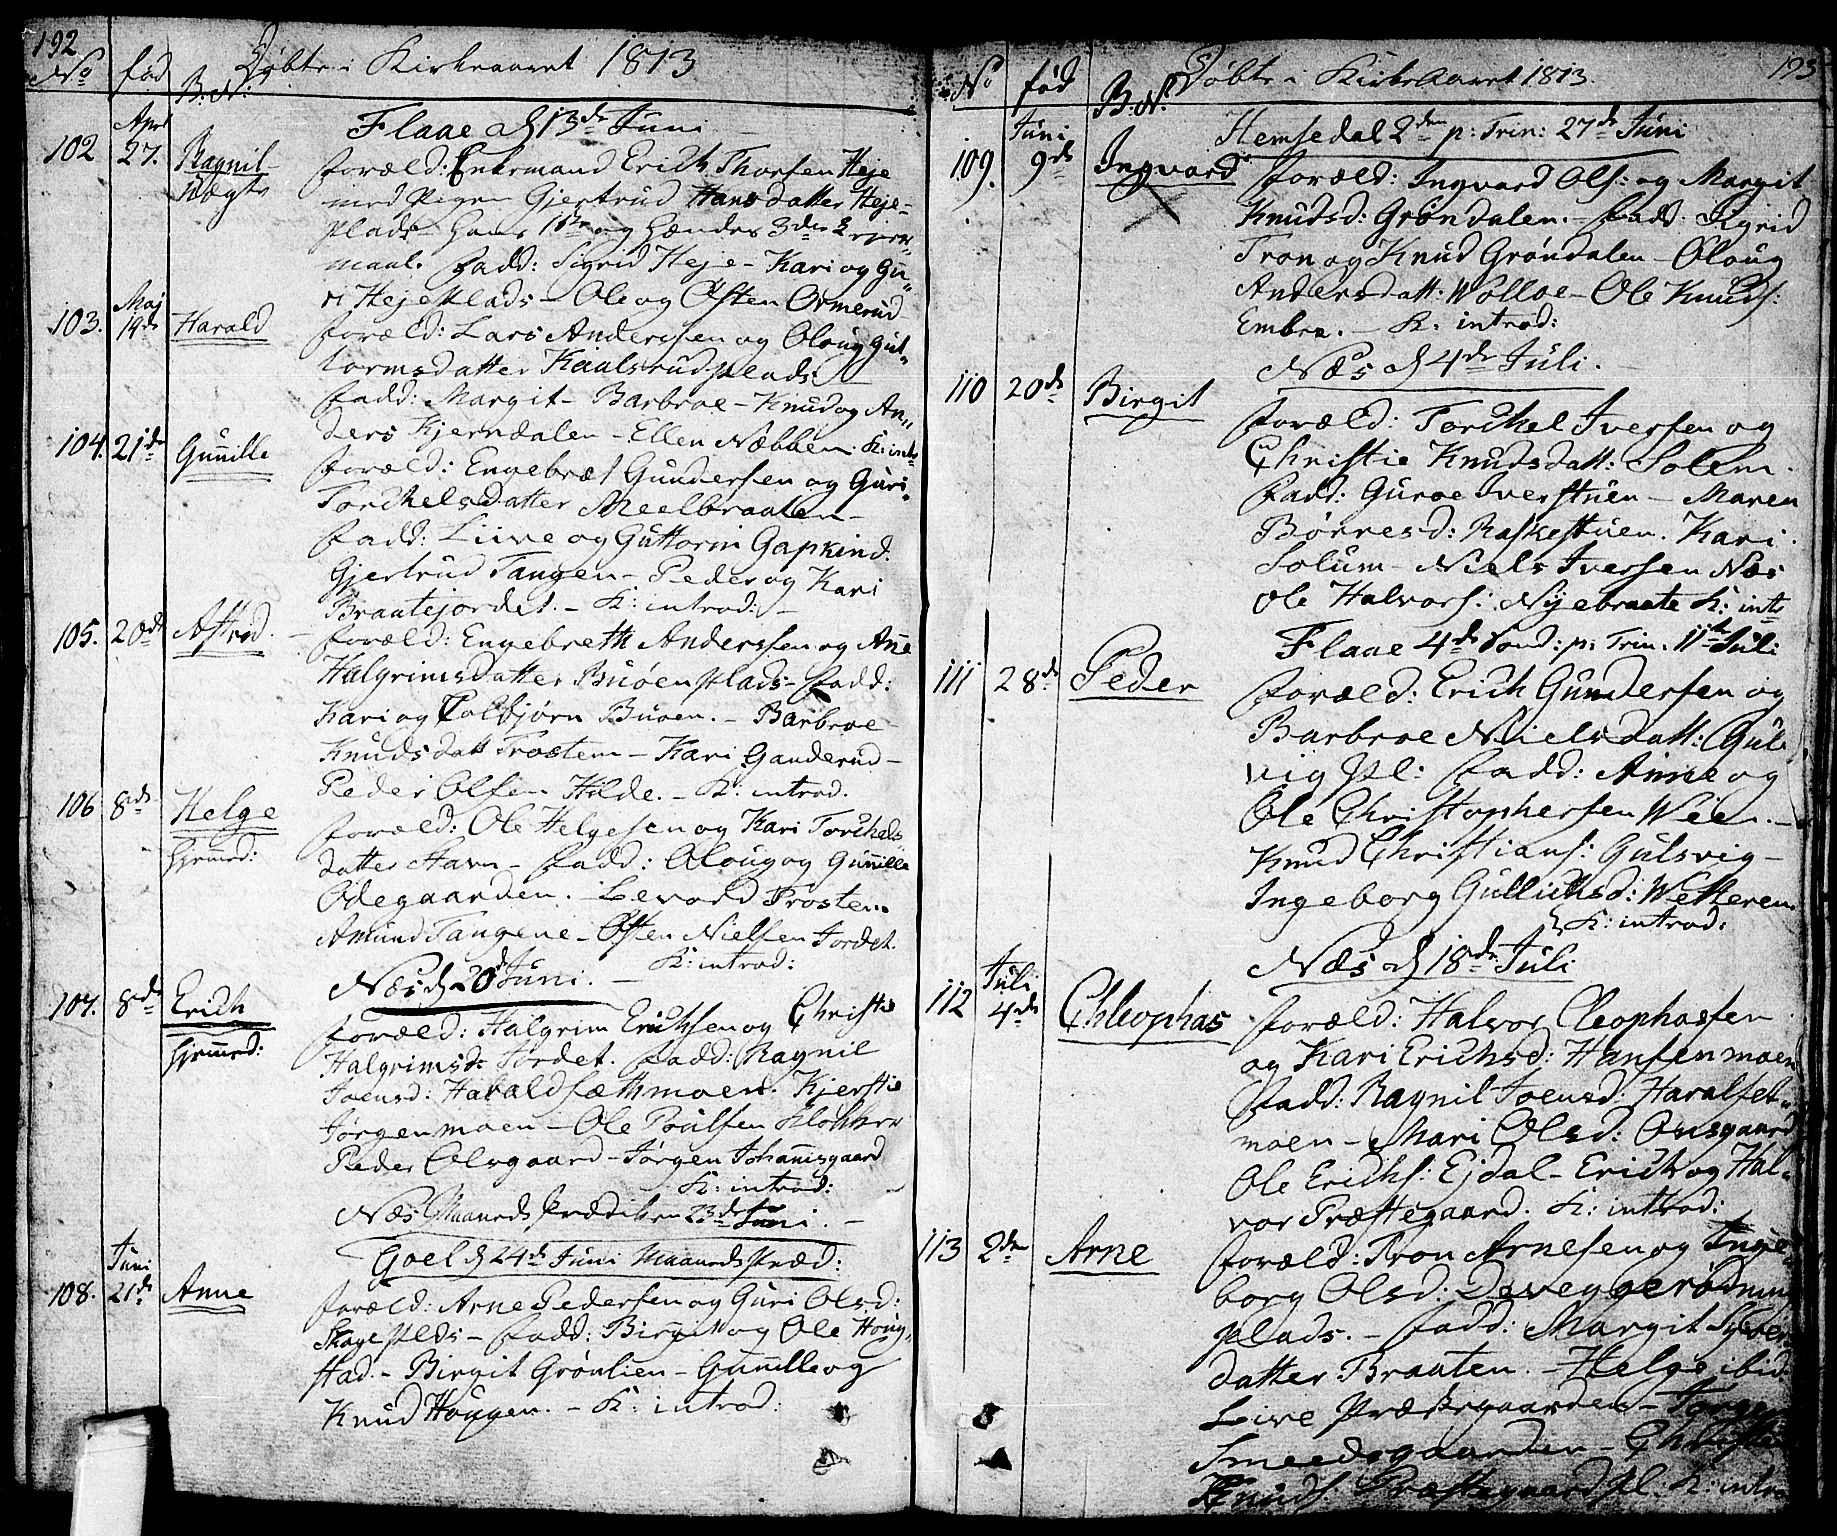 192
Døbte i Kirkeaaret 1813
No fød B: N:
Flaae d 13de Juni
102 April 27. Ragnil uægte
foræld: Enkemand Erich Thorsen Heje
med Pigen Gjertrud Hansdatter Heje-
plads hans 1ste og hendes 3die Lejer-
maal. fadd: Sigrid Heje - Kari og Gu-
ri Hejeplads - Ole og Østen Ormerud
103. Maj 19de Harald
foræld: Lars Anderssen og Oloug Gut-
tormsdatter Kaalsrudplads
fadd: Margit - Barbroe - Knud og An-
ders Kjerndalen - Ellen Næbben: K: intr:
104. 21de Gunille
foræld: Engebræt Gundersen og Guri
Torchelsdatter Meelbraaten -
fadd: Liive og Guttorm Gapkind.
Gjertrud Tangen - Peder og Kari
Braatejordet. - K: introd: -
105. 20de Astrid.
foræld: Engebreth Anderssen og Ane
Halgrimsdatter Buøen plads - fadd:
Kari og Tolbjørn Buøen. - Barbroe
Knudsdatt Trostem - Kari Ganderud -
Peder Olsen Hilde. - K: introd.
106 8de Helge hjemmed:
foræld: Ole Helgesen og Kari Torchels
datter Stavn - fadd: Oloug og Gunille
Ødegaarden. - Levord Trostem
Amund Tangene - Østen Nielsen Jordet.
K: introd:
Næs d 20de Juni. -
107. 8de Erich hjemmed:
foræld: Halgrim Erichsen og Christi
Halgrimsd: Jordet. fadd: Ragnil
Joensd: Haraldsæthmoen. Kjersti
Jørgenmoen - Ole Poulsen Klokker
Peder Olsgaard - Jørgen Johannisgaard
K: introd:
Næs Maaneds Prædiken 23de Juni. -
Goel d 24de Juni Maaneds Præd:
108. Juni 21de Anne
foræld: Arne Pedersen og Guri Olsd:
Skogeplds - fadd: Birgit og Ole Houg-
stad. - Birgit Grønlien - Gunille og
Knud Houggen. - K: introd:
193
Døbte i Kirkeaaret 1813.
No fød B: N.
Hemsedal 2den p: Trin: 27de Juni
109. Juni 9de Ingvard
foræld: Ingvard Ols: og Margit
Knudsd: Grøndalen. - fadd: Sigrid
Tron og Knud Grøndalen - Oloug
Andersdatt: Wolloe - Ole Knuds:
Embre. - K: introd:
Næs d 4de Juli. -
110 20de Birgit
foræld: Torchel Iversen og
Christie Knudsdatt: Solem.
fadd: Guroe Iverstuen - Maren
Børresd: Raskestuen. Kari
Solum - Niels Iversen Næs
Ole Halvors: Nijebraate K: intr
Flaae 4de Sond: p: Trin: 11te Juli
111 28de Peder
foræld: Erich Gundersen og
Barbroe Nielsdatt: Guls
vig Pl: fadd: Anne og
Ole Christophersen Wien. -
Knud Christians: Gulsvig -
Ingeborg Gullichsd: Wetteren.
K: introd:
Næs d 18de Juli
112 Juli 4de Chleophas
foræld: Halvor Cleophassen
og Kari Erichsd: Hansenmoen
fadd: Ragnil Joensd: Haralset-
moen - Mari Olsd: Onsgaard
Ole Erichs: Ejdal - Erich og Hal-
vor Præstegaard. K: introd:
113 2den Arne
foræld: Tron Arnesen og Inge-
borg Olsd: Deveggerødnings
plads. - fadd: Margit Syver
datter Braaten. - Helge ibid
Live Præstegaarden - Jørgen
Smeedsgaarden - Christen
Knuds: Præstegaards pl. K: intro